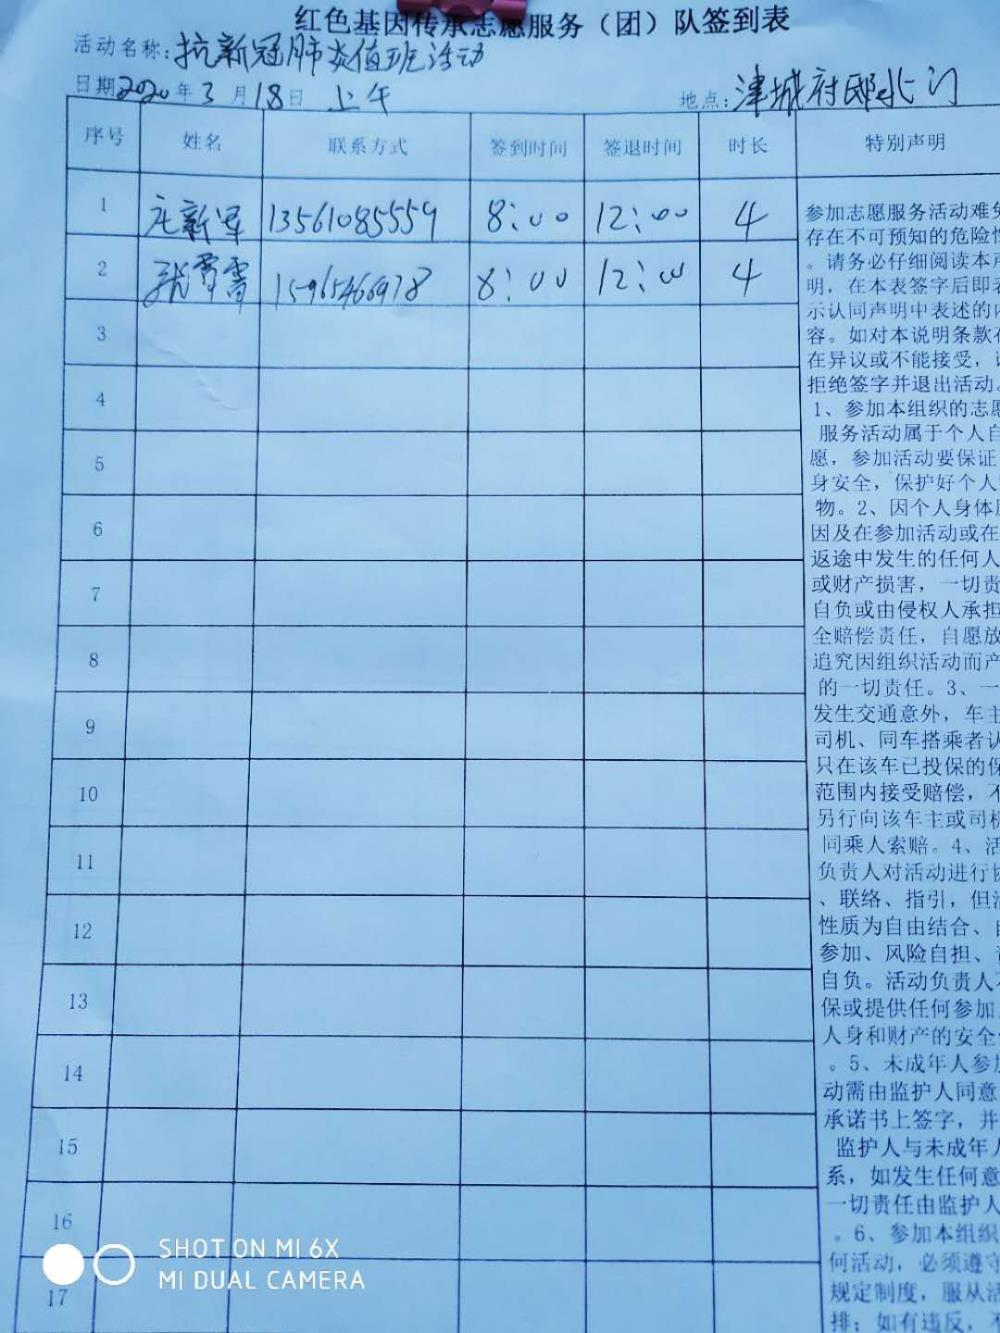 红色基因传承志愿服务（团）队签到表
活动名称:抗新冠肺炎值班活动
日期2020年3月18日 上午 地点:津城府邸北门
序号 姓名 联系方式 签到时间 签退时间 时长 特别声明
1 庄新军 13561085559 8:00 12:00 4
2 8:00 12:00 4
3
4
5
6
7
8
9
10
11
12
13
14
15
16
17
参加志愿服务活动难免
存在不可预知的危险性
。请务必仔细阅读本声
明，在本表签字后即表
示认同声明中表述的内
容。如对本说明条款存
在异议或不能接受，请
拒绝签字并退出活动。
1、参加本组织的志愿
服务活动属于个人自
愿，参加活动要保证
身安全，保护好个人
物。2、因个人身体
因及在参加活动或在
返途中发生的任何人
或财产损害，一切责
自负或由侵权人承担
全赔偿责任，自愿放
追究因组织活动而产
的一切责任。3、一
发生交通意外，车主
司机、同车搭乘者认
只在该车已投保的保
范围内接受赔偿，不
另行向该车主或司机
同乘人索赔。4、活
负责人对活动进行协
、联络、指引，但活
性质为自由结合、自
参加、风险自担、
自负。活动负责人不
保或提供任何参加
人身和财产的安全
。5、未成年人参加
动需由监护人同意
承诺书上签字，并
监护人与未成年人
系，如发生任何意
一切责任由监护人
。6、参加本组织
何活动，必须遵守
规定制度，服从活
排；如有违反，不
SHOT ON MI 6X
MI DUAL CAMERA